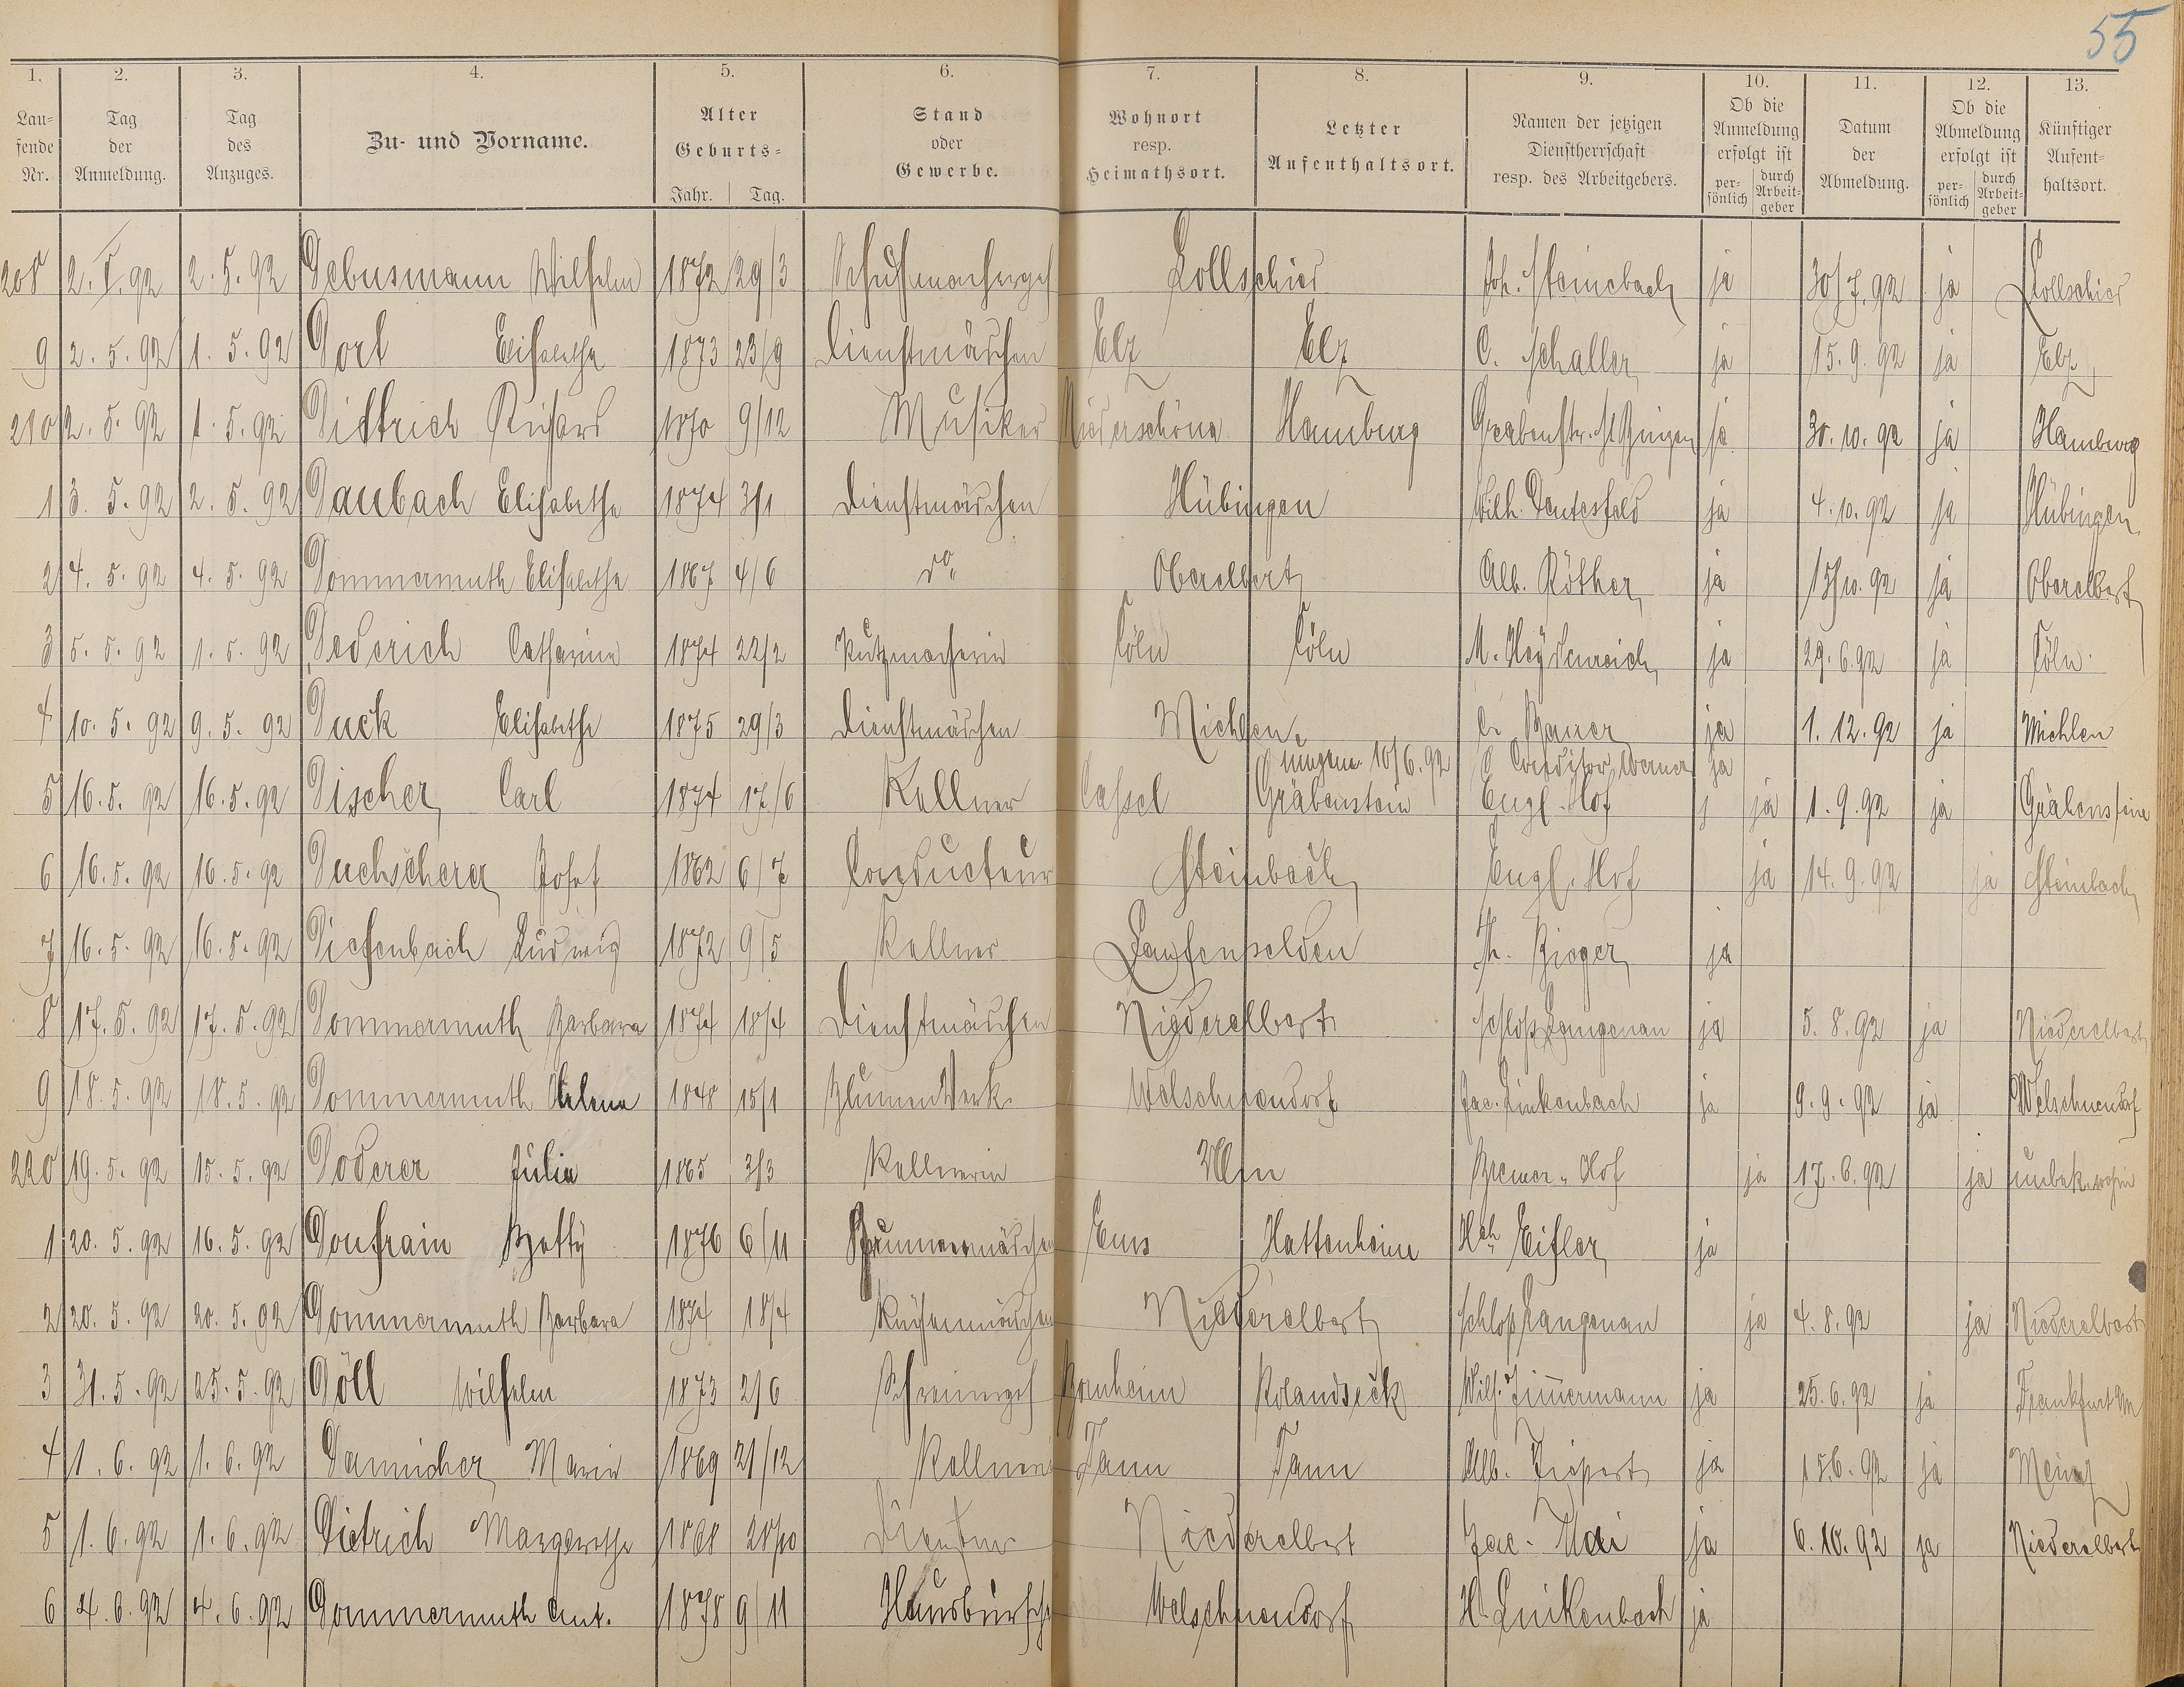 55
1. 2. 3. 4. 5. 6. 7. 8. 9. 10. 11. 12. 13.
Lau=fende Nr. Tag der Anmeldung. Tag des Anzuges. Zu- und Vorname. Alter Geburts= Jahr. Tag. Stand oder Gewerbe. Wohnort resp. Heimathsort. Letzter Aufenthaltsort. Namen der jetzigen Dienstherrschaft resp. des Arbeitgebers. Ob die Anmeldung erfolgt ist persönlich durch Arbeitgeber Datum der Abmeldung. Ob die Abmeldung erfolgt ist persönlich durch Arbeitgeber Künftiger Aufenthaltsort.
208 2. 5. 92 2. 5. 92 Debusmann Wilhelm 1872 29/3 Schuhmacherges Lollschied Joh. Steinebach ja 30/7. 92 ja Lollschied
9 2. 5. 92 1. 5. 92 Dorl Elisabetha 1873 23/9 Dienstmädchen Elz Elz C. Schaller ja 15. 9. 92 ja Elz
210 2. 5. 92 1. 5. 92 Dittrich Richard 1870 9/12 Musiker Niederschöna Hamburg Grabenstr. ja 30. 10. 92 ja Hamburg
1 3. 5. 92 2. 5. 92 Daubach Elisabetha 1874 3/1 Dienstmädchen Hübingen Wilh. Deutesfeld ja 4. 10. 92 ja Hübingen
2 4. 5. 92 4. 5. 92 Dommermuth Elisabetha 1867 4/6 do Oberelbert Alb. Röther ja 15/10. 92 ja Oberelbert
3 5. 5. 92 1. 5. 92 Dederich Catharina 1874 22/2 Putzmacherin Cöln Cöln M. Heydenreich ja 29. 6. 92 ja Cöln
4 10. 5. 92 9. 5. 92 Duck Elisabetha 1875 29/3 Dienstmädchen Miehlen C. Bauer ja 1. 12. 92 ja Miehlen
10/6. 92 Conditor Werner ja
5 16. 5. 92 16. 5. 92 Discher Carl 1874 17/6 Kellner Cassel Gräbenstein Engl. Hof j ja 1. 9. 92 ja Gräbenstein
6 16. 5. 92 16. 5. 92 Duchscherer Josef 1862 6/7 Conducteur Steinbach Engl. Hof ja 14. 9. 92 ja Steinbach
7 16. 5. 92 16. 5. 92 Diefenbach Ludwig 1872 9/5 Kellner Laufenselden Th. Rieger ja
8 17. 5. 92 17. 5. 92 Dommermuth Barbara 1874 18/4 Dienstmädchen Niederelbert Schloß Langenau ja 5. 8. 92 ja Niederelbert
9 18. 5. 92 18. 5. 92 Dommermuth Helena 1848 15/1 Blumen Verk. Welschneudorf Jac. Linkenbach ja 9. 9. 92 ja Welschneudorf
220 19. 5. 92 15. 5. 92 Doderer Julie 1865 3/3 Kellnerin Ulm Bremer Hof ja 17. 6. 92 ja unbek. wohin
1 20. 5. 92 16. 5. 92 Doufrain Betty 1876 6/11 Brunnenmädchen Ems Hattenheim Hch Eisler ja
2 20. 5. 92 20. 5. 92 Dommermuth Barbara 1874 18/4 Küchenmädchen Niederelbert Schloß Langenau ja 4. 8. 92 ja Niederelbert
3 31. 5. 92 25. 5. 92 Döll Wilhelm 1873 2/6 Schreinerges Bornheim Rolandseck Wilh. Zimmermann ja 25. 6. 92 ja Frankfurt M
4 1. 6. 92 1. 6. 92 Marie 1869 21/12 Kellnerin Tann Tann Alb. ja 15.6. 92 ja Mainz
5 1. 6. 92 1. 6. 92 Dietrich Margaretha 1868 28/10 Niederelbert Jac. Mai ja 6. 10. 92 ja Niederelbert
6 4. 6. 92 4. 6. 92 Dommermuth Ant. 1878 9/11 Hausbursche Welschneudorf H. Linkenbach ja